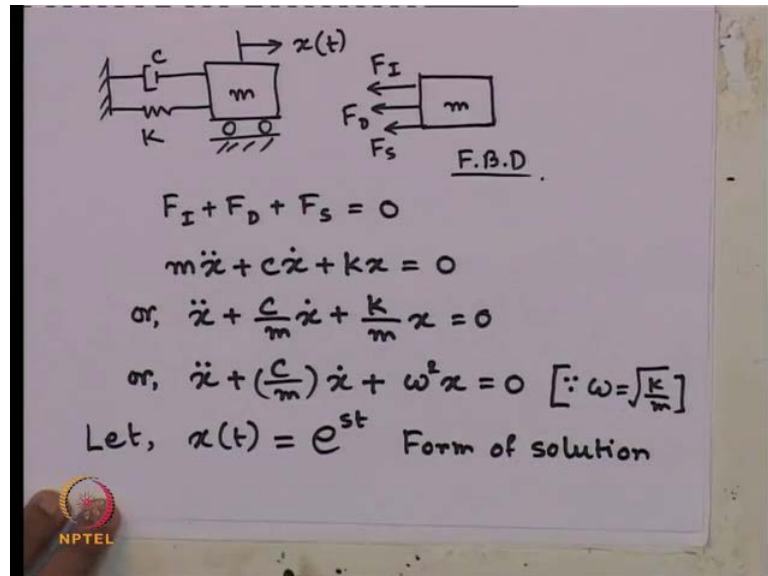 x(t)
C
m
K
F_I
F_D
F_S
m
F.B.D.
F_I + F_D + F_S = 0
mẍ + cẋ + kx = 0
or, ẍ + c/m ẋ + k/m x = 0
or, ẍ + (c/m) ẋ + ω²x = 0 [∵ ω = √(k/m)]
Let, x(t) = e^{st} Form of solution
NPTEL